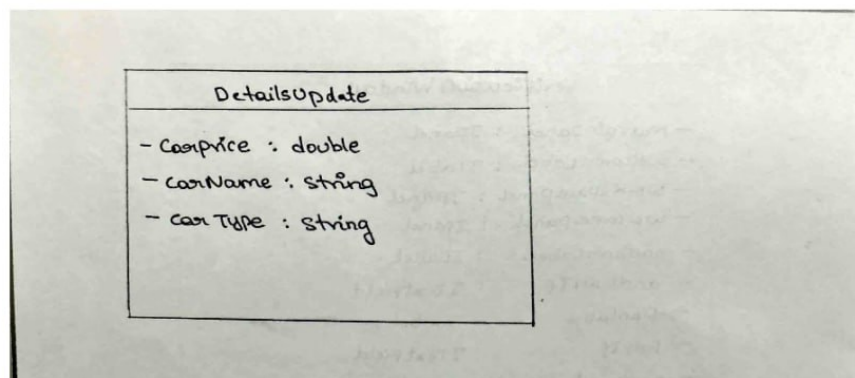 DetailsUpdate
- CarPrice : double
- CarName : String
- Car Type : String